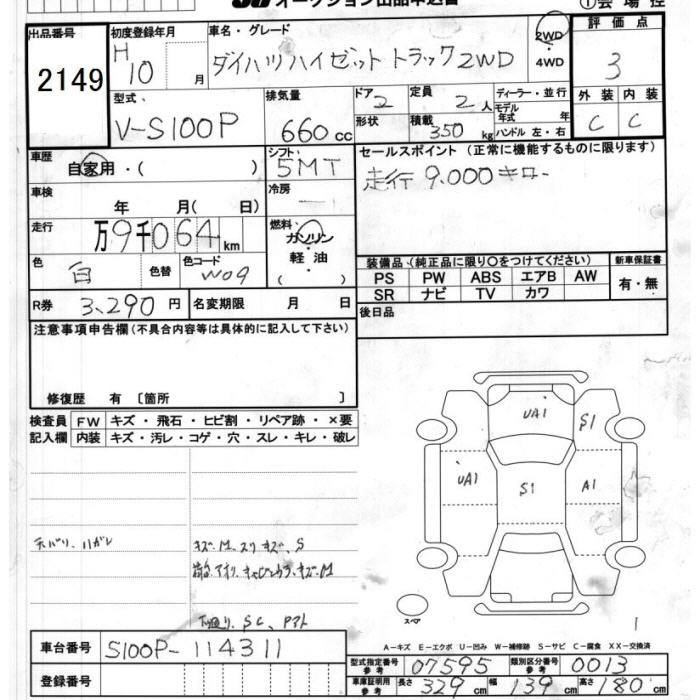 オークション出品申込書
①会場控
出品番号
2149
初度登録年月
H 10 月
車名・グレード
ダイハツハイゼット トラック 2WD
2WD・4WD
評価点
3
型式
V-S100P
排気量
660 cc
ドア 2
形状
定員 2 人
積載 350 kg
ディーラー・並行
モデル年式 年
ハンドル 左・右
外装 内装
C C
車歴
自家用・( )
シフト
5MT
セールスポイント (正常に機能するものに限ります)
走行 9.000キロ
車検
年 月( 日)
冷房
走行
万9千064km
燃料
ガソリン・軽油・( )
色 白 色替
色コード W09
装備品・(純正品に限り○をつけてください)
PS PW ABS エアB AW
SR ナビ TV カワ
新車保証書
有・無
R券 3,290 円
名変期限 月 日
後日品
注意事項申告欄(不具合内容等は具体的に記入して下さい)
修復歴 有 〔箇所 〕
検査員記入欄
FW キズ・飛石・ヒビ割・リペア跡・×要
内装 キズ・汚レ・コゲ・穴・スレ・キレ・破レ
UA1 S1
UA1 S1 A1
キズ.M.スリキズ.S
下廻り.SC.
スペア
A-キズ E-エクボ U-凹み W-補修跡 S-サビ C-腐食 XX-交換済
車台番号 S100P-114311
型式指定番号参考 07595 類別区分番号参考 0013
登録番号
車庫証明用参考 長さ 329 cm 幅 139 cm 高さ 180 cm